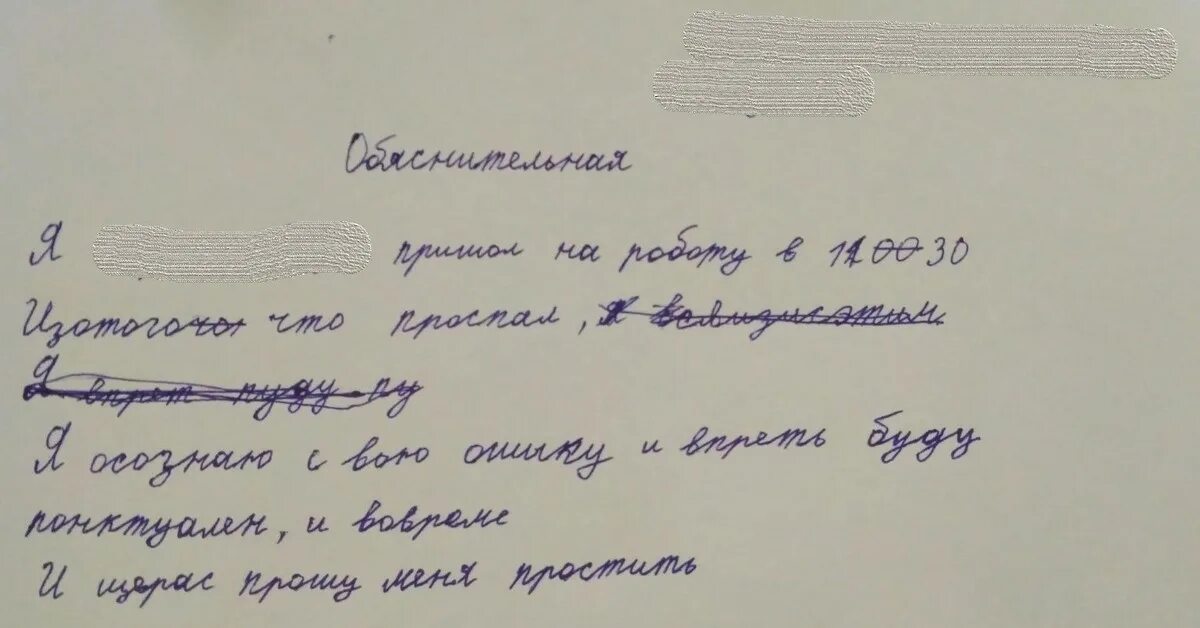 Обяснительная
Я пришол на роботу в 11 00 30
Изотогочто что проспал,
Я впрет пуду пу
Я осознаю с вою ошику и впреть буду
понктуален, и вовреме
И щерас прошу меня простить